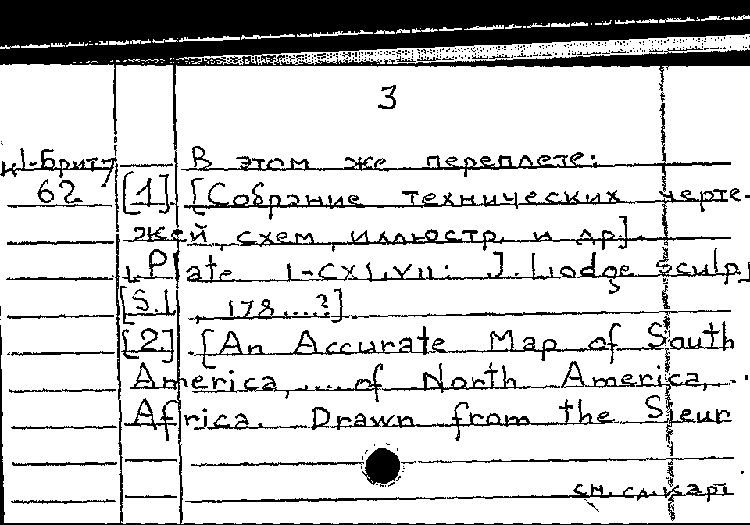 3
В этом же переплете:
62 [1]. [Собрание технических черте-
жей, схем, иллюстр. и др].
Plate I-CXLVII: J. Lodge sculp
[S.l., 178....?].
[2]. [An Accurate Map of South
America, .... of North America, ..
Africa. Drawn from the Sieur
см. сл. карт